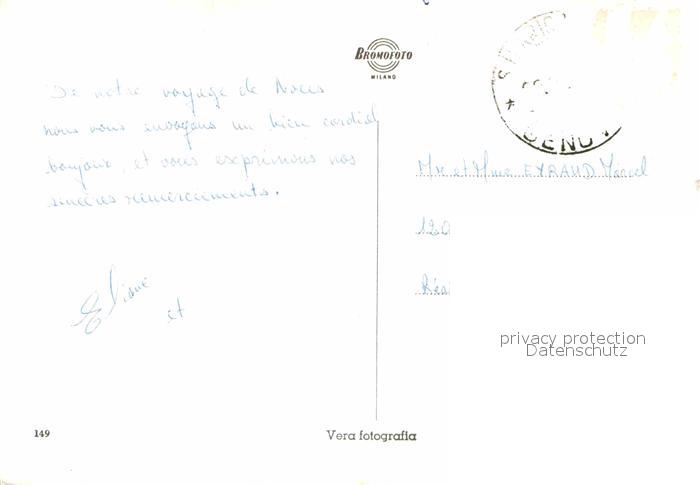 BROMOFOTO
MILANO
GENOV
De notre voyage de Noces
nous vous envoyons un bien cordial
bonjour, et vous exprimons nos
sincères remerciements.
Eliane
et
Mr et Mme EYRAUD Marcel
120
Réal
privacy protection
Datenschutz
149
Vera fotografia